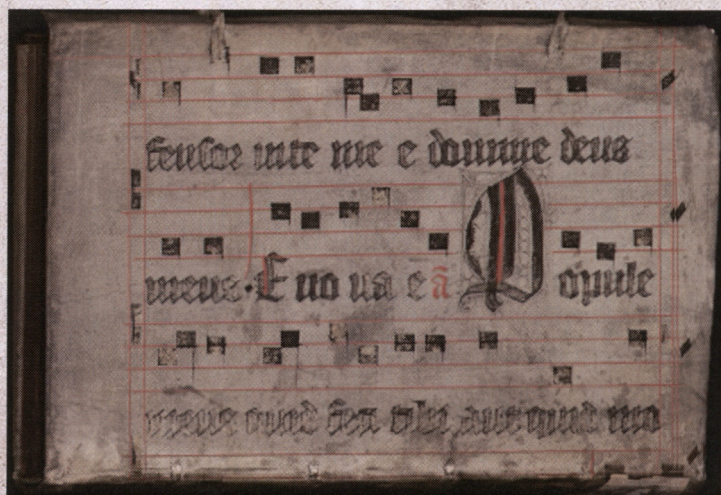 fensor uite me e domine deus
meus · E uo ua e ā Popule
meus quid feci tibi aut quid mo